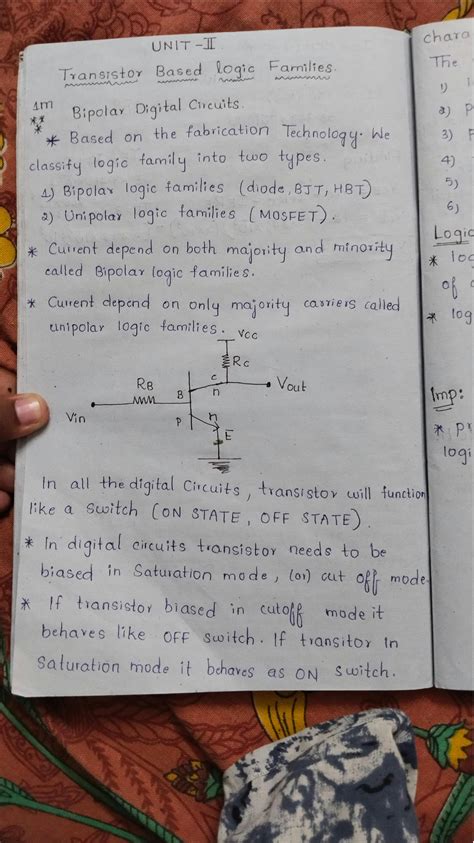 UNIT - II
Transistor Based logic Families.
1m
** Bipolar Digital Circuits.
* Based on the fabrication Technology. We
classify logic family into two types.
1) Bipolar logic families (diode, BTT, HBT)
2) Unipolar logic families (MOSFET).
* Current depend on both majority and minority
called Bipolar logic families.
* Current depend on only majority carriers called
unipolar logic families.
Vcc
Rc
RB
B
C
n
Vout
Vin
P
n
E
In all the digital Circuits, transistor will function
like a Switch (ON STATE, OFF STATE).
* In digital circuits transistor needs to be
biased in Saturation mode, (or) cut off mode.
* If transistor biased in cutoff mode it
behaves like OFF switch. If transitor in
Saturation mode it behaves as ON switch.
chara
The
1)
2) P
3)
4)
5)
6)
Logic
* loc
of
* log
Imp:
* pr
logi